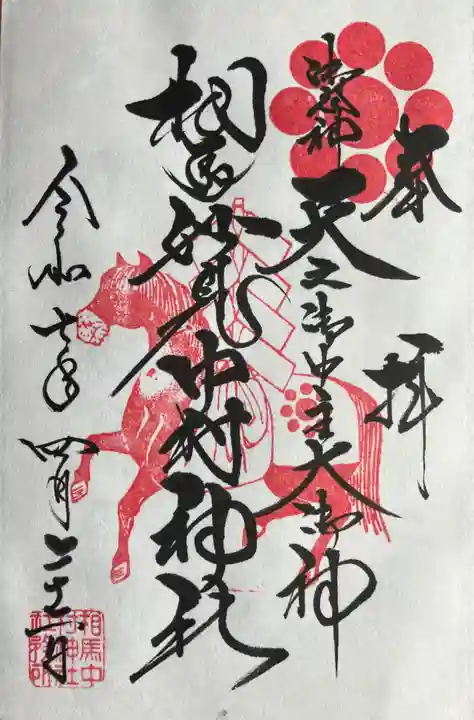 奉拝
御祭神
天之御中主大御神
相馬妙見中村神社
令和七年四月二十一日
相馬中村神社